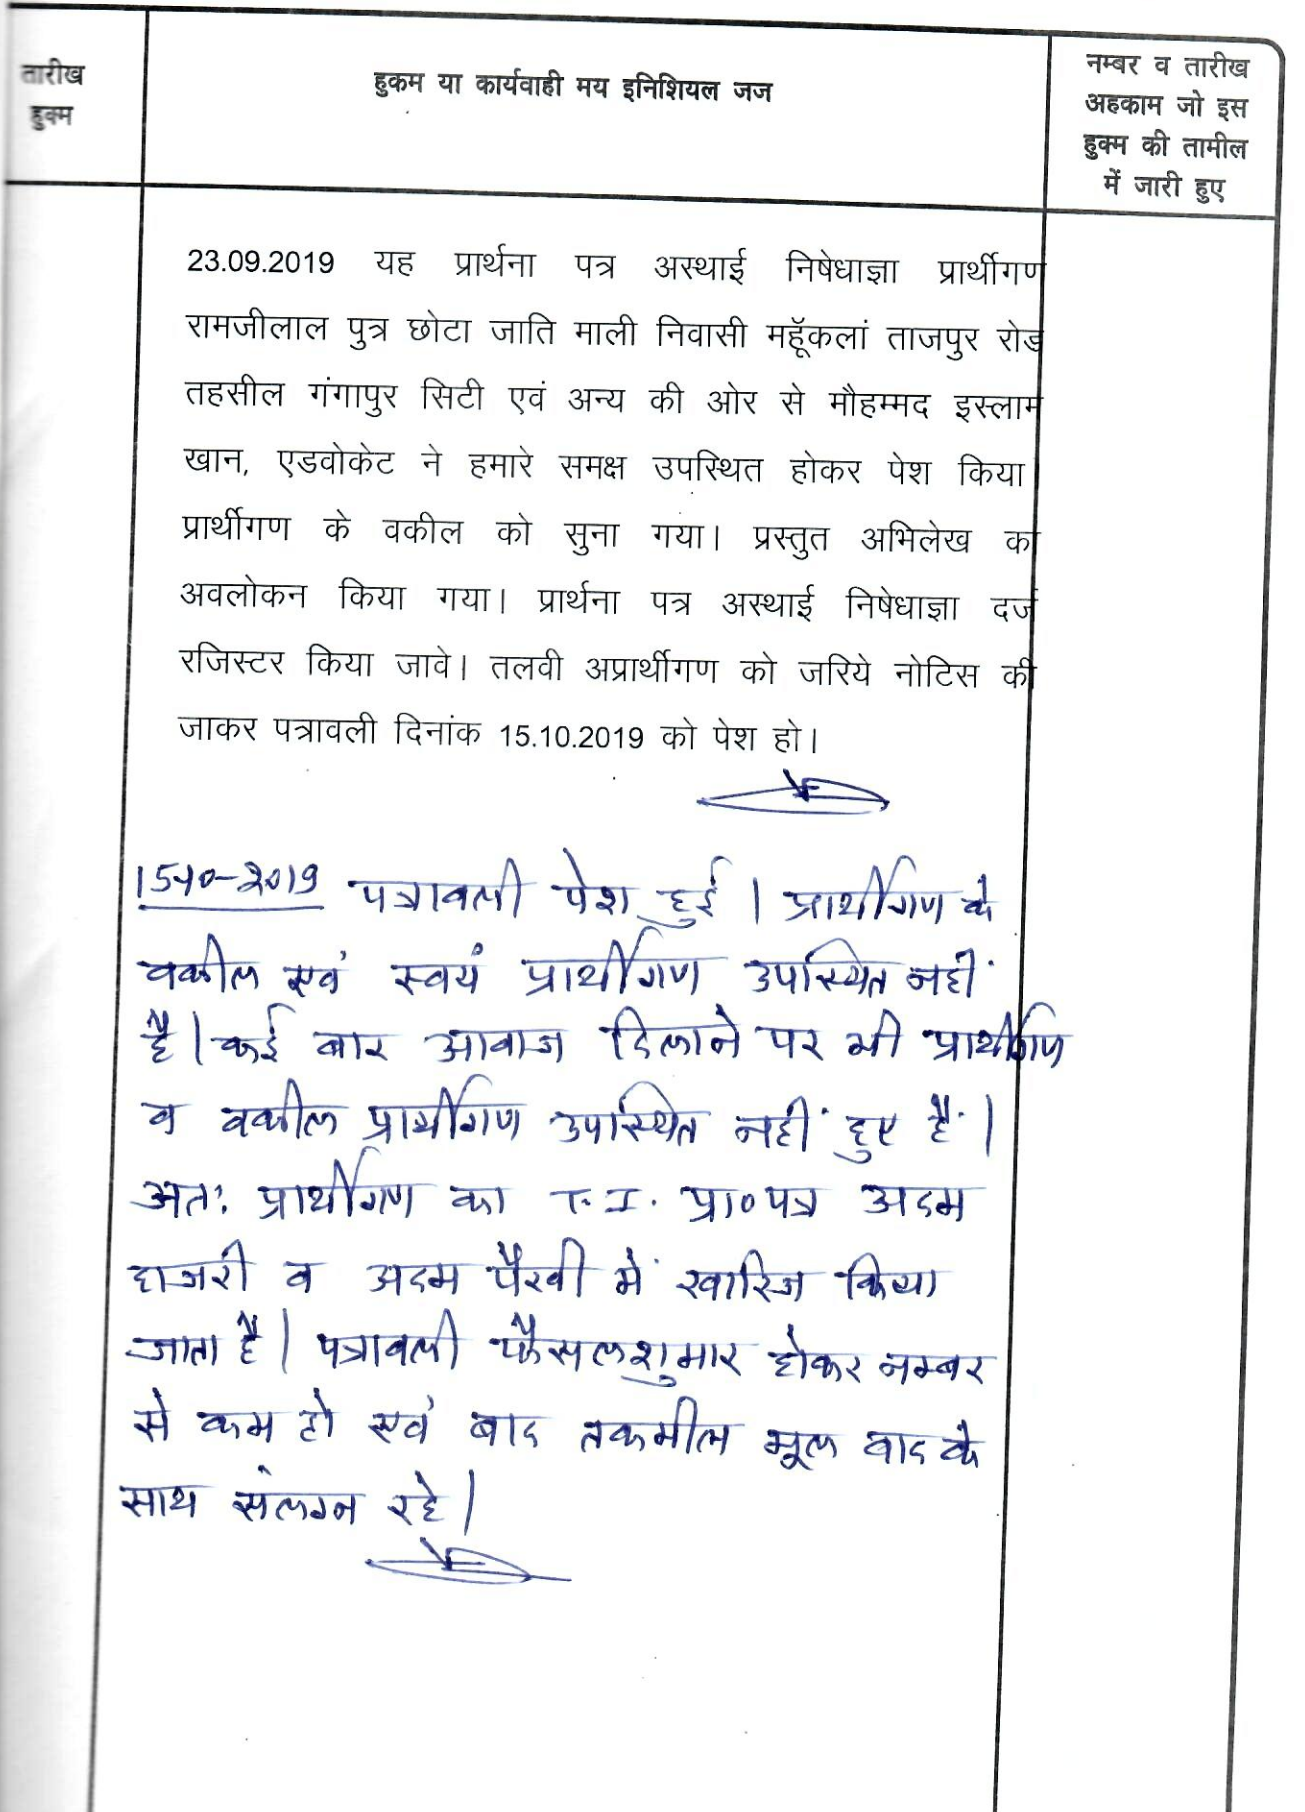 तारीख
हुक्म
हुकम या कार्यवाही मय इनिशियल जज
नम्बर व तारीख
अहकाम जो इस
हुक्म की तामील
में जारी हुए
23.09.2019 यह प्रार्थना पत्र अस्थाई निषेधाज्ञा प्रार्थीगण
रामजीलाल पुत्र छोटा जाति माली निवासी महूॅकलां ताजपुर रोड
तहसील गंगापुर सिटी एवं अन्य की ओर से मौहम्मद इस्लाम
खान, एडवोकेट ने हमारे समक्ष उपस्थित होकर पेश किया
प्रार्थीगण के वकील को सुना गया। प्रस्तुत अभिलेख का
अवलोकन किया गया। प्रार्थना पत्र अस्थाई निषेधाज्ञा दर्ज
रजिस्टर किया जावे। तलवी अप्रार्थीगण को जरिये नोटिस की
जाकर पत्रावली दिनांक 15.10.2019 को पेश हो।
15-10-2019 पत्रावली पेश हुई। प्रार्थीगण के
वकील एवं स्वयं प्रार्थीगण उपस्थित नहीं
है। कई बार आवाज दिलाने पर भी प्रार्थीगण
व वकील प्रार्थीगण उपस्थित नहीं हुए है।
अतः प्रार्थीगण का T.I. प्रा०पत्र अदम
हाजरी व अदम पैरवी में खारिज किया
जाता है। पत्रावली फैसलशुमार होकर नम्बर
से कम हो एवं बाद तकमील मूल वाद के
साथ संलग्न रहे।